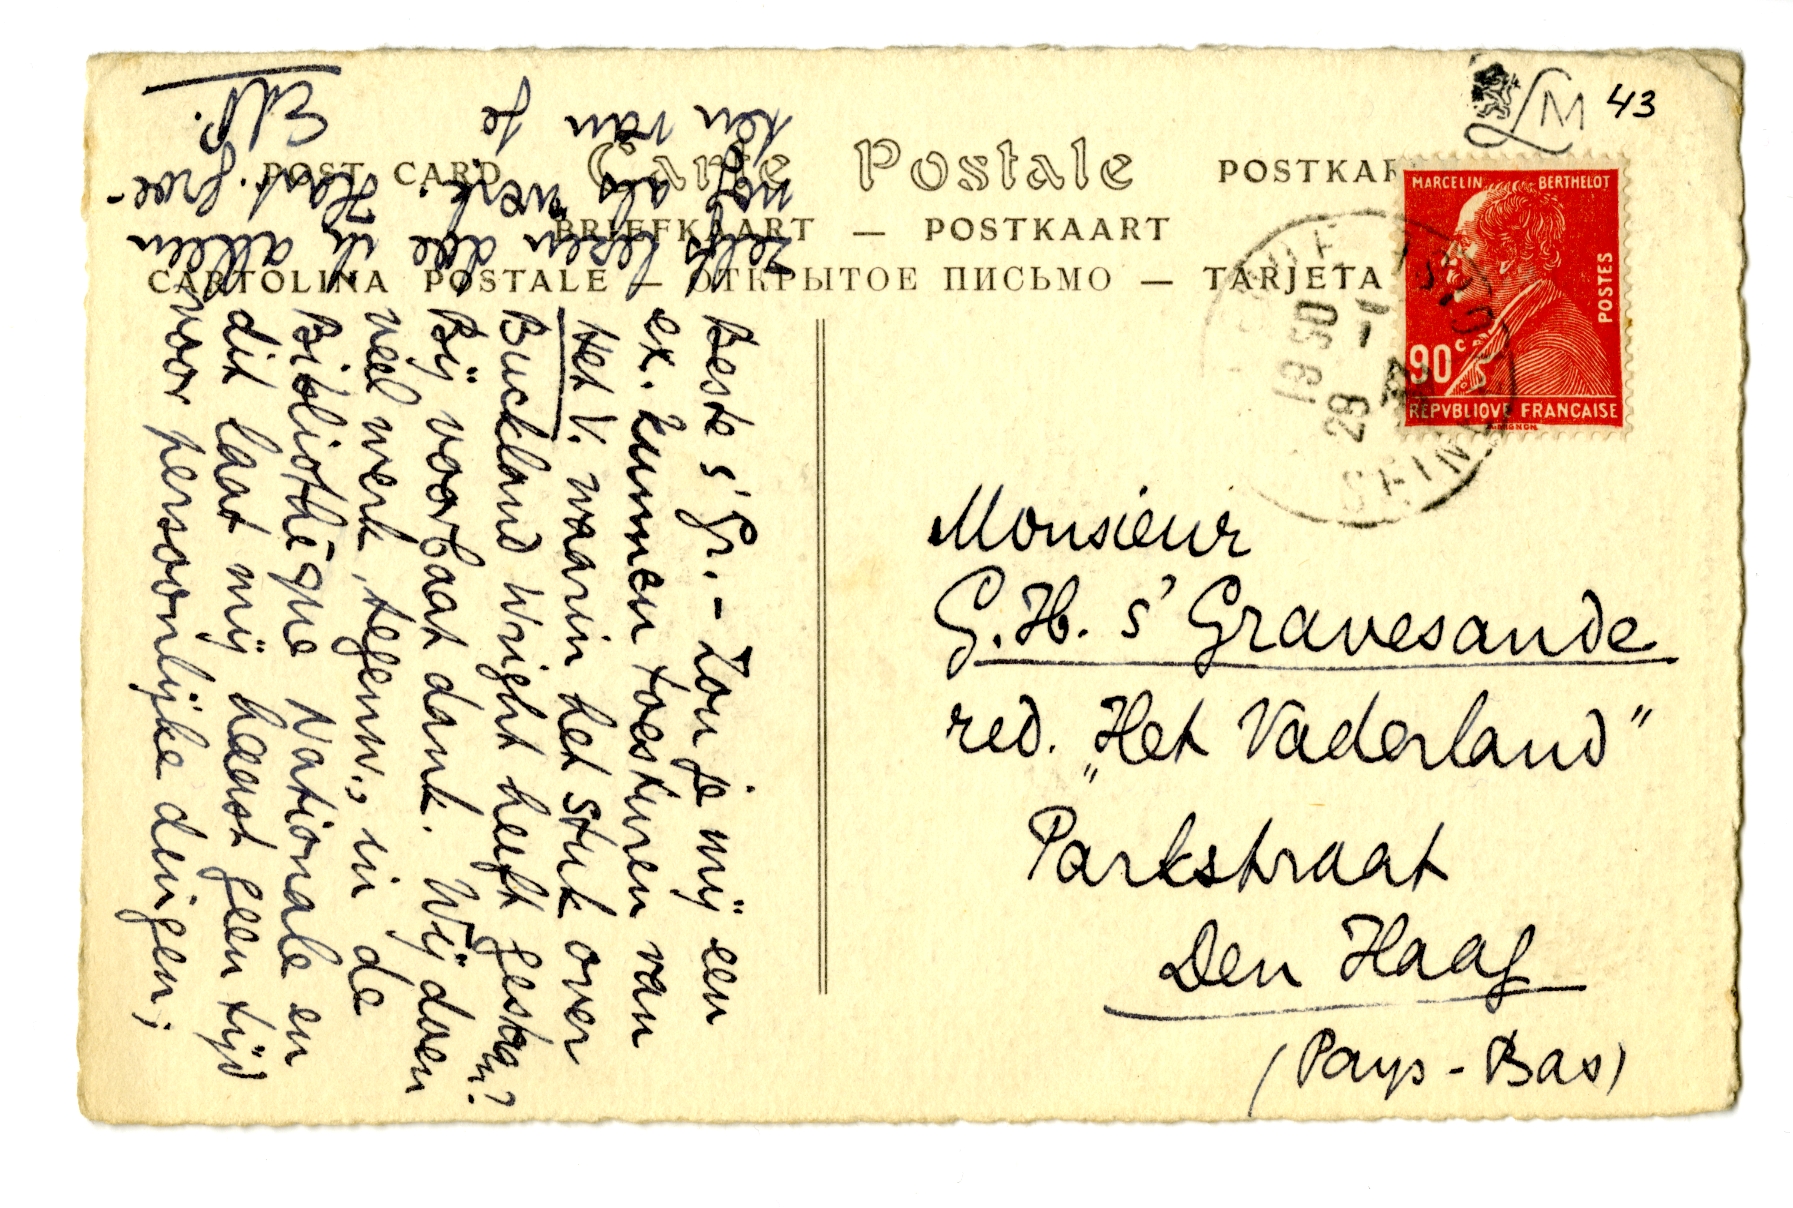 POST CARD Carte Postale POSTKAR
BRIEFKAART — POSTKAART
CARTOLINA POSTALE — ОТКРЫТОЕ ПИСЬМО — TARJETA
LM 43
MARCELIN BERTHELOT
POSTES
90c
REPVBLIQVE FRANÇAISE
19 30
29 -1
SEINE
Beste s' Gr. – Zou je mij een
ex. kunnen toesturen van
het V. waarin het stuk over
Buckland Wright heeft gestaan?
Bij voorbaat dank. Wij doen
veel werk, tegenw., in de
Bibliothèque Nationale en
dit laat mij haast geen tijd
voor persoonlijke dingen;
zelfs lezen doe ik alleen
nog als werk. Hart. groe-
ten van je
EduP.
Monsieur
G.H. s' Gravesande
red. „Het Vaderland"
Parkstraat
Den Haag
(Pays-Bas)